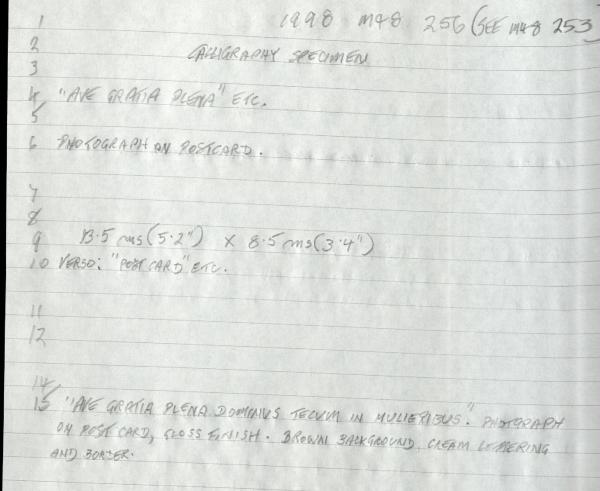 1 1998 M48 256 (SEE M48 253)
2 CALLIGRAPHY SPECIMEN
3
4 "AVE GRATIA PLENA" ETC.
5
6 PHOTOGRAPH ON POSTCARD.
7
8
9 13.5 cms (5.2") x 8.5 cms (3.4")
10 VERSO: "POST CARD" ETC.
11
12
14
15 "AVE GRATIA PLENA DOMINUS TECUM IN MULIERIBUS." PHOTOGRAPH
ON POST CARD, GLOSS FINISH. BROWN BACKGROUND, CREAM LETTERING
AND BORDER.